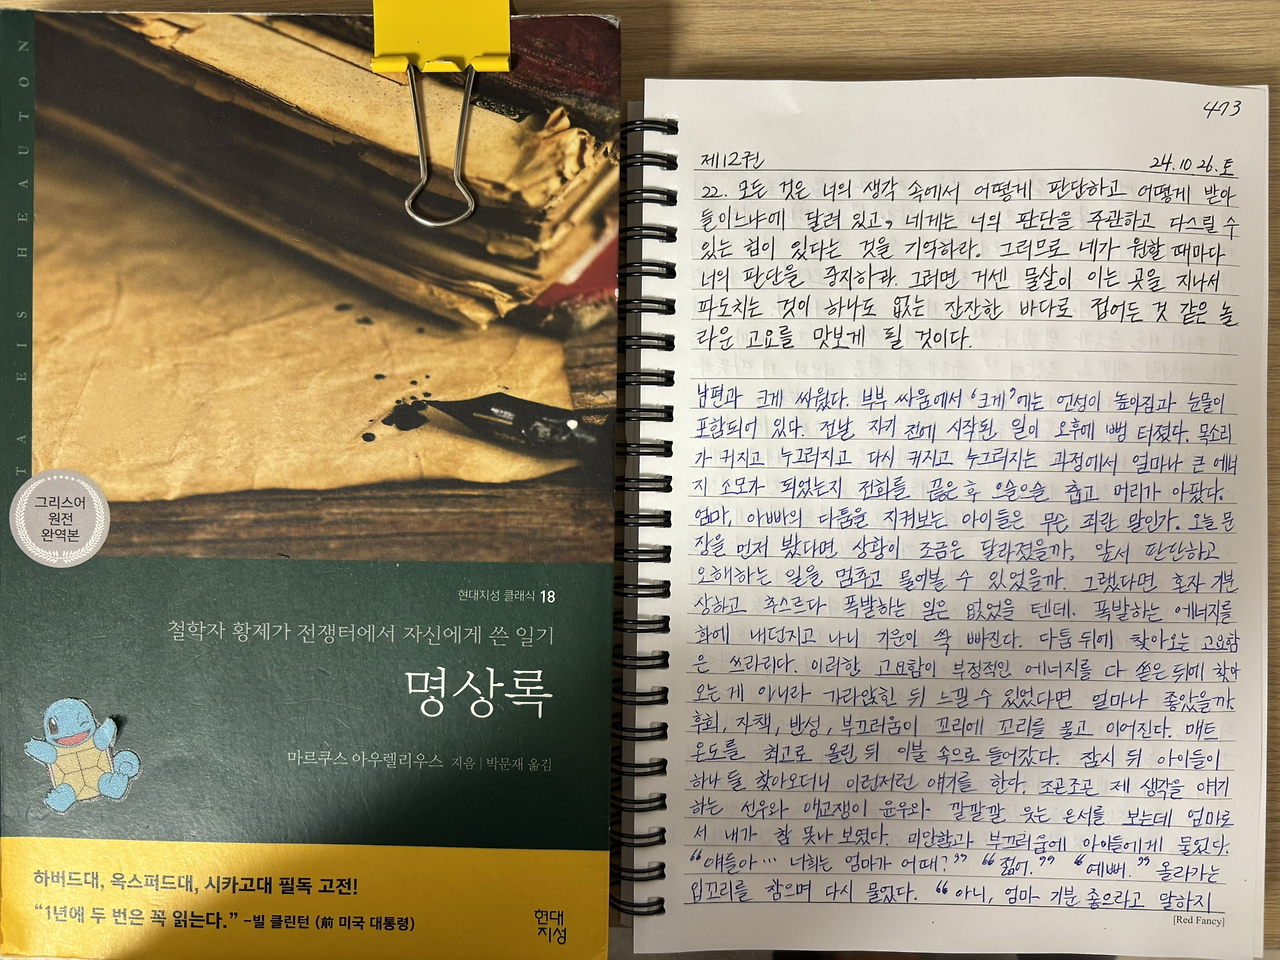 TA EIS HEAUTON
그리스어
원전
완역본
현대지성 클래식 18
철학자 황제가 전쟁터에서 자신에게 쓴 일기
명상록
마르쿠스 아우렐리우스 지음 | 박문재 옮김
하버드대, 옥스퍼드대, 시카고대 필독 고전!
“1년에 두 번은 꼭 읽는다.” –빌 클린턴 (前 미국 대통령)
현대
지성
473
제12권 24.10.26.토
22. 모든 것은 너의 생각 속에서 어떻게 판단하고 어떻게 받아
들이느냐에 달려 있고, 네게는 너의 판단을 주관하고 다스릴 수
있는 힘이 있다는 것을 기억하라. 그러므로 네가 원할 때마다
너의 판단을 중지하라. 그러면 거센 물살이 이는 곳을 지나서
파도치는 것이 하나도 없는 잔잔한 바다로 접어든 것 같은 놀
라운 고요를 맛보게 될 것이다.
남편과 크게 싸웠다. 부부 싸움에서 ‘크게’에는 언성이 높아짐과 눈물이
포함되어 있다. 전날 자기 전에 시작된 일이 오후에 뻥 터졌다. 목소리
가 커지고 누그러지고 다시 커지고 누그러지는 과정에서 얼마나 큰 에너
지 소모가 되었는지 전화를 끊은 후 으슬으슬 춥고 머리가 아팠다.
엄마, 아빠의 다툼을 지켜보는 아이들은 무슨 죄란 말인가. 오늘 문
장을 먼저 봤다면 상황이 조금은 달라졌을까. 앞서 판단하고
오해하는 일을 멈추고 물어볼 수 있었을까. 그랬다면 혼자 기분
상하고 추스르다 폭발하는 일은 없었을 텐데. 폭발하는 에너지를
화에 내던지고 나니 기운이 쏙 빠진다. 다툼 뒤에 찾아오는 고요함
은 쓰라리다. 이러한 고요함이 부정적인 에너지를 다 쏟은 뒤에 찾아
오는 게 아니라 가라앉힌 뒤 느낄 수 있었다면 얼마나 좋았을까.
후회, 자책, 반성, 부끄러움이 꼬리에 꼬리를 물고 이어진다. 매트
온도를 최고로 올린 뒤 이불 속으로 들어갔다. 잠시 뒤 아이들이
하나 둘 찾아오더니 이런저런 얘기를 한다. 조곤조곤 제 생각을 얘기
하는 선우와 애교쟁이 윤우와 깔깔깔 웃는 은서를 보는데 엄마로
서 내가 참 못나 보였다. 미안함과 부끄러움에 아이들에게 물었다.
“얘들아… 너희는 엄마가 어때?” “젊어.” “예뻐.” 올라가는
입꼬리를 참으며 다시 물었다. “아니, 엄마 기분 좋으라고 말하지
[Red Fancy]